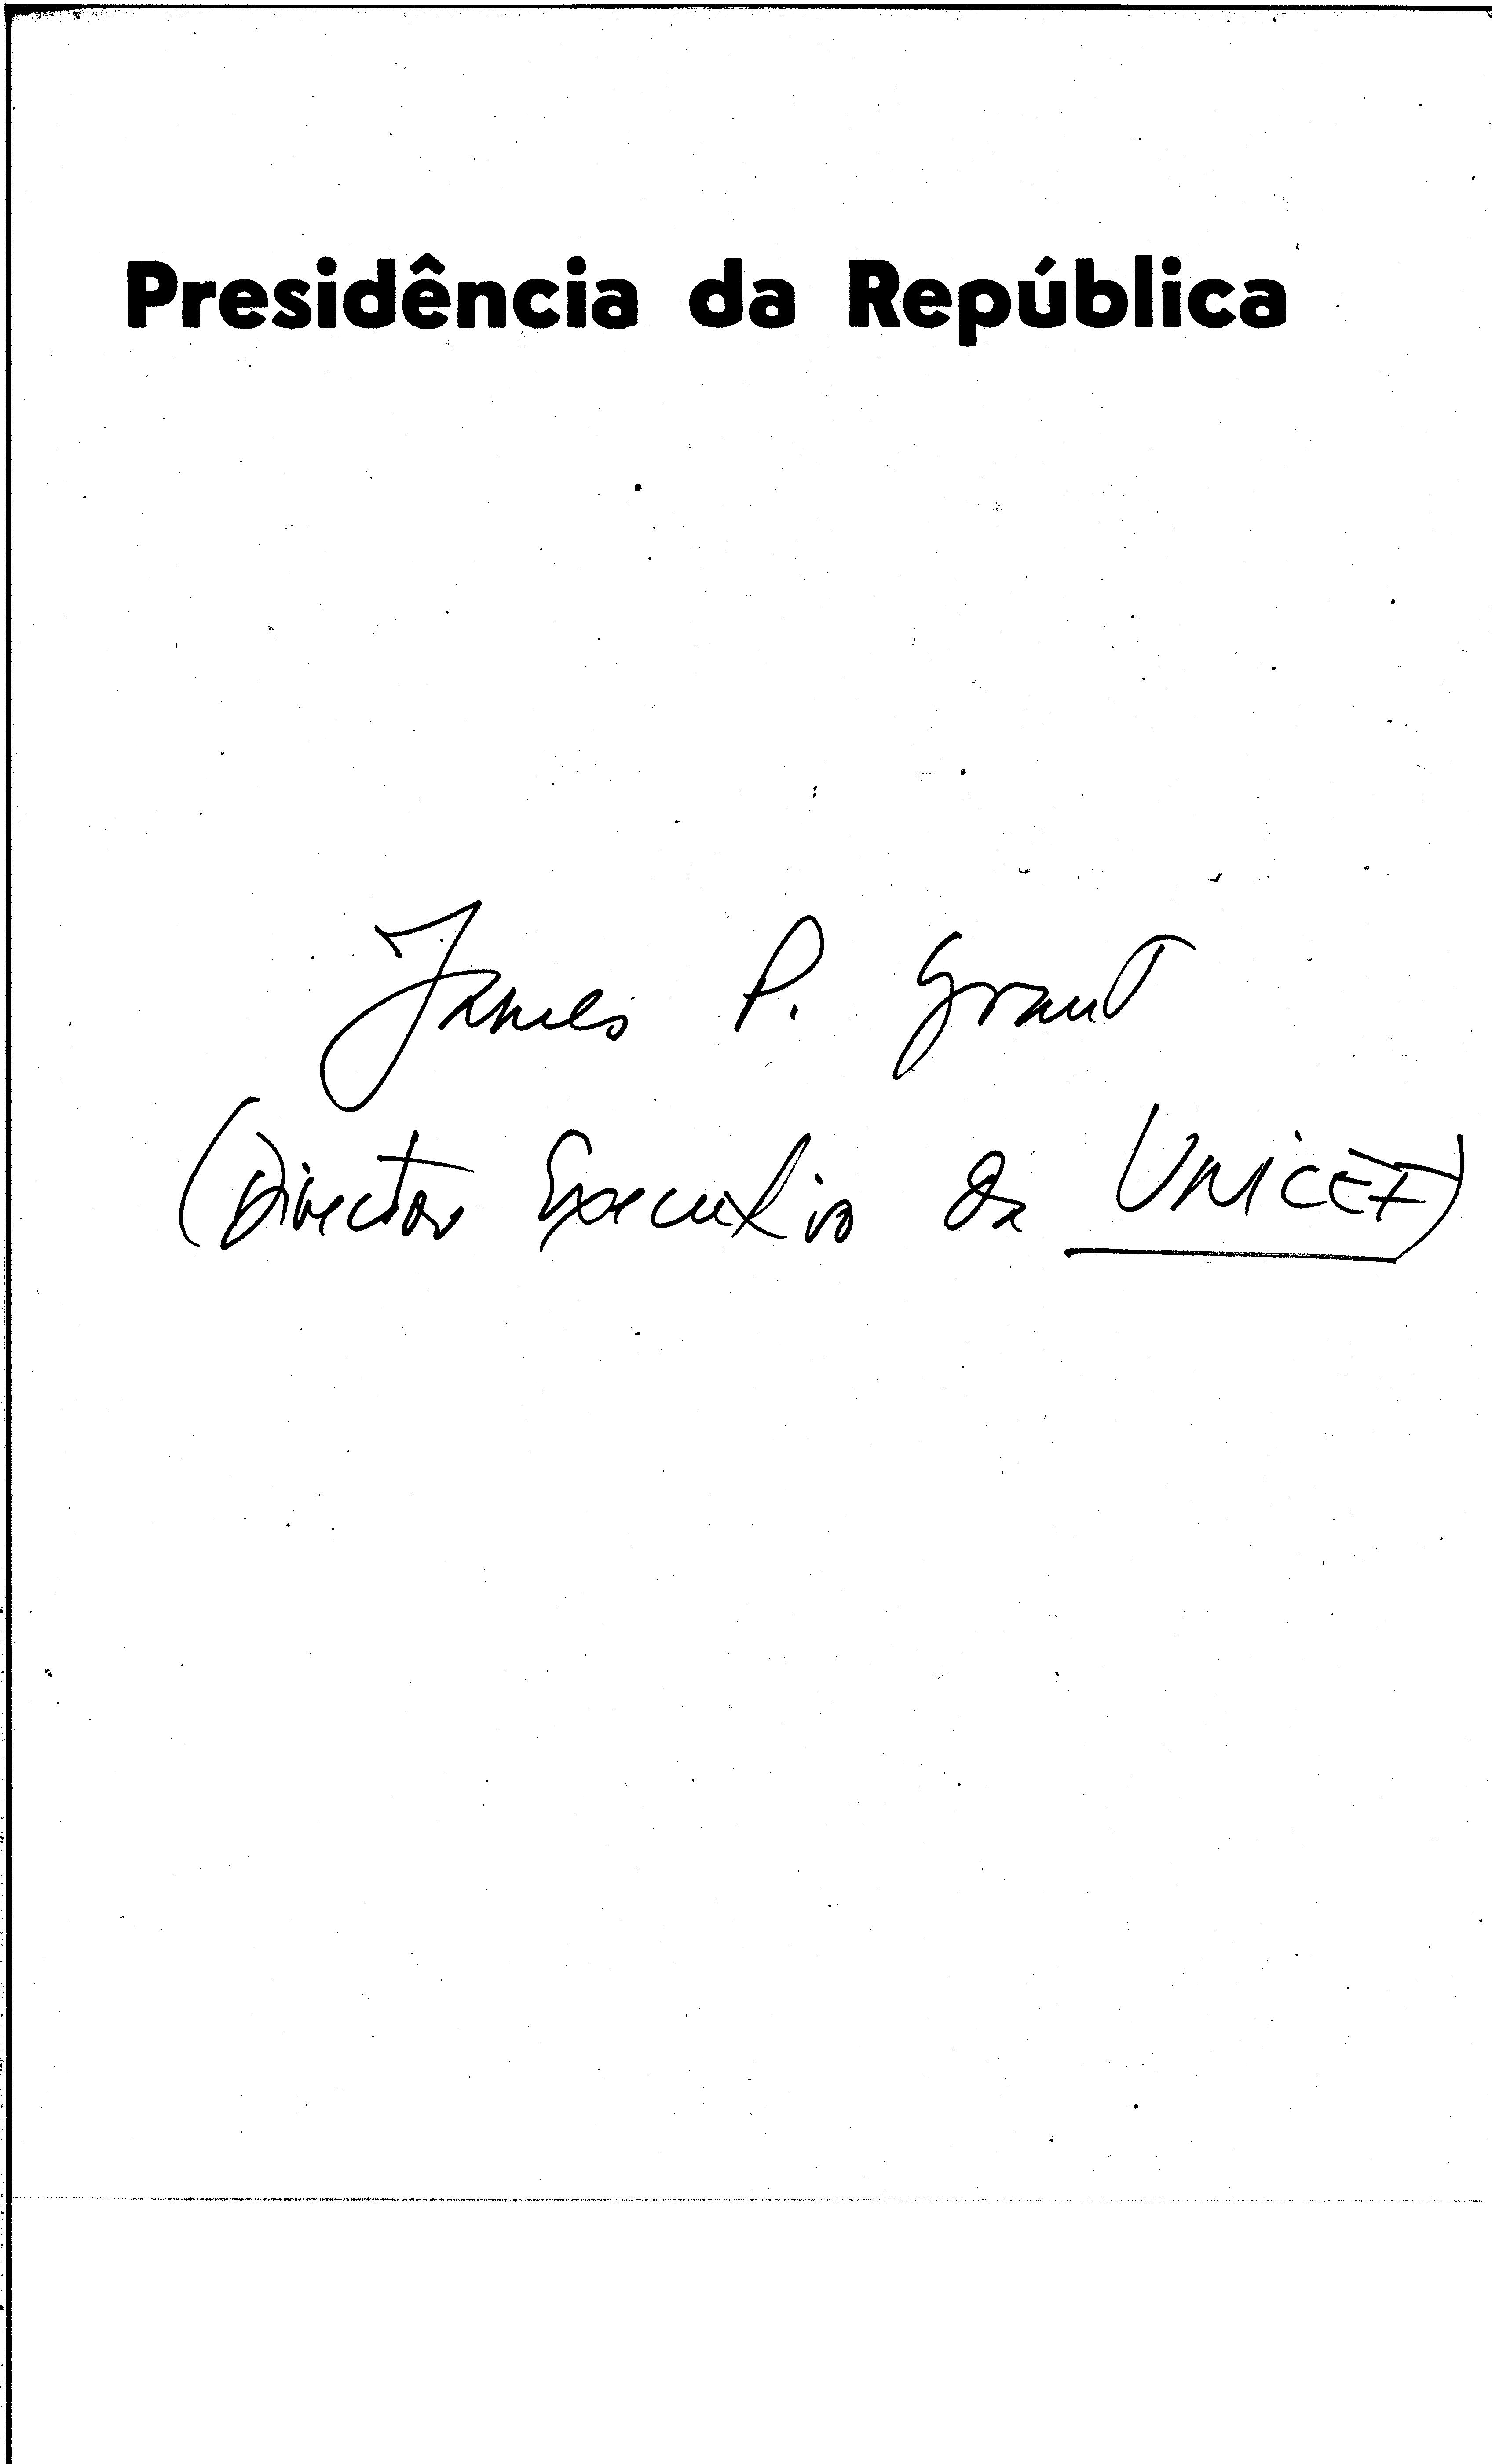 Presidência da República
James P. Grant
(Director Executivo da UNICEF)